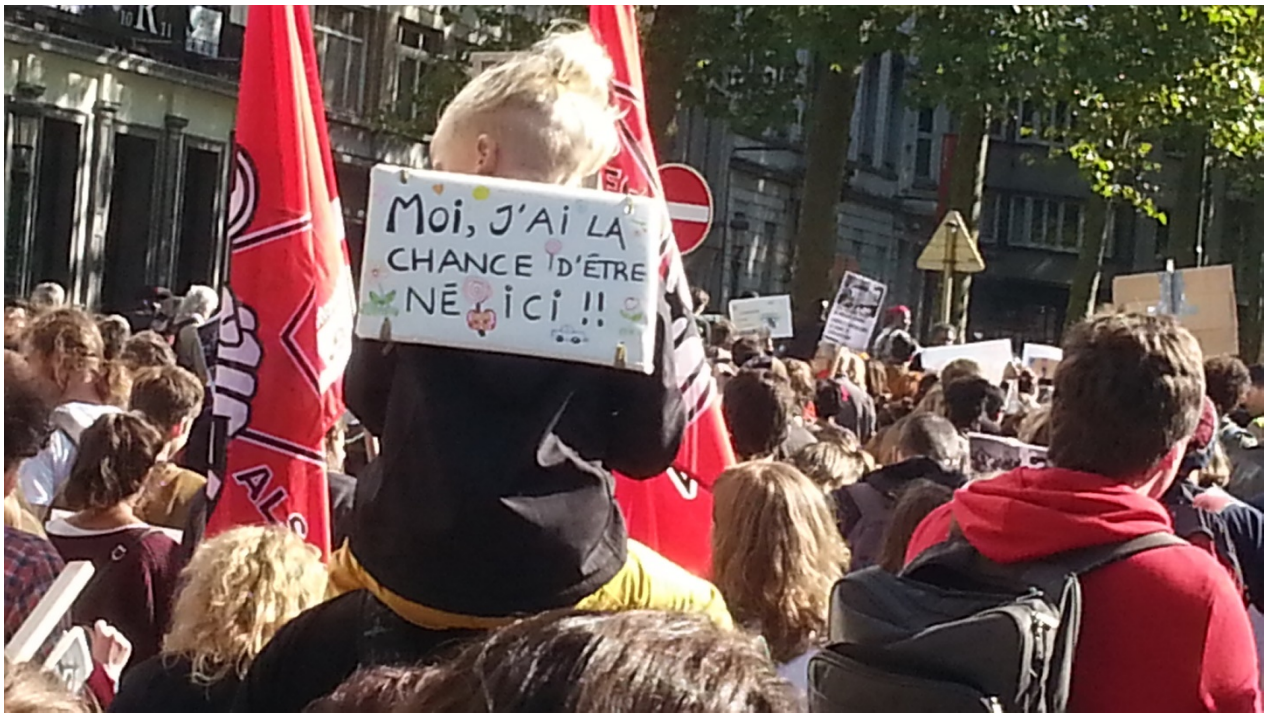 MOi, J'Ai LA
CHANCE D'ÊTRE
NÉ iCi !!
10 11
ALS